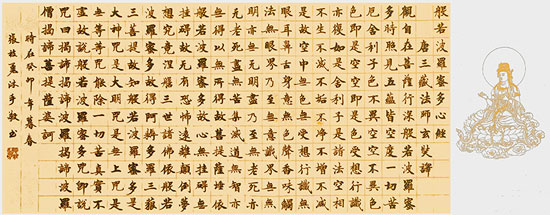 般若波羅蜜多心經
唐三藏法師玄奘譯
觀自在菩薩行深般若波羅蜜
多時照見五蘊皆空度一切苦
厄舍利子色不異空空不異色
色即是空空即是色受想行識
亦復如是舍利子是諸法空相
不生不滅不垢不淨不增不減
是故空中無色無受想行識無
眼耳鼻舌身意無色聲香味觸
法無眼界乃至無意識界無無
明亦無無明盡乃至無老死亦
無老死盡無苦集滅道無智亦
無得以無所得故菩提薩埵依
般若波羅蜜多故心無罣礙無
罣礙故無有恐怖遠離顛倒夢
想究竟涅槃三世諸佛依般若
波羅蜜多故得阿耨多羅三藐
三菩提故知般若波羅蜜多是
大神咒是大明咒是無上咒是
無等等咒能除一切苦真實不
虛故說般若波羅蜜多咒即說
咒曰揭諦揭諦波羅揭諦波羅
僧揭諦菩提薩婆訶
時在癸卯年暮春
張沐手敬書